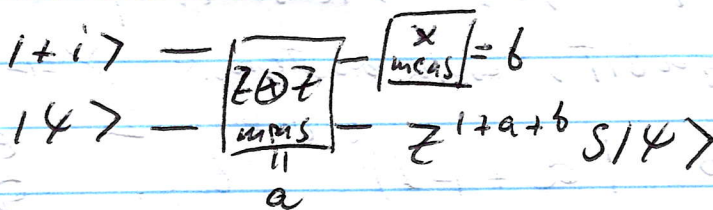 |+i> — Z⊗Z meas — x meas = b
|ψ> — = a — Z^{1+a+b} S|ψ>